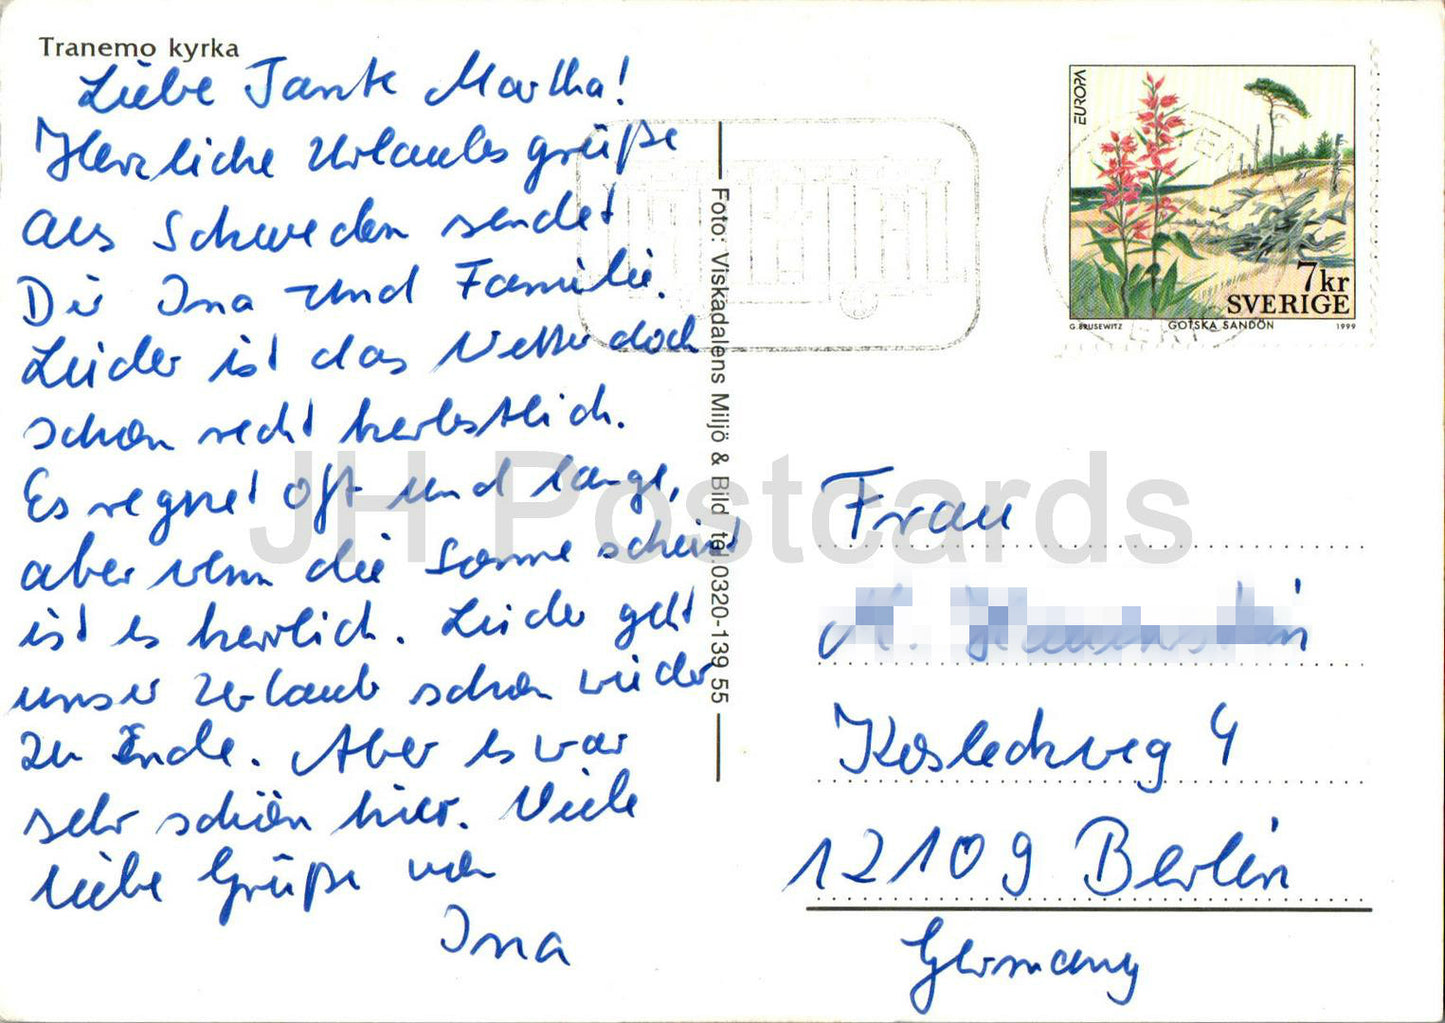 Tranemo kyrka
Liebe Tante Martha!
Herzliche Urlaubsgrüße
aus Schweden sendet
Dir Ina und Familie.
Leider ist das Wetter doch
schon recht herbstlich.
Es regnet oft und lange,
aber wenn die Sonne scheint
ist es herrlich. Leider geht
unser Urlaub schon wieder
zu Ende. Aber es war
sehr schön hier. Viele
liebe Grüße von
Ina
Foto: Viskadalens Miljö & Bild tel 0320-139 55
EUROPA
7kr
SVERIGE
G. BRUSEWITZ GOTSKA SANDÖN 1999
Frau
M.
Kosleckweg 4
12109 Berlin
Germany
JH Postcards